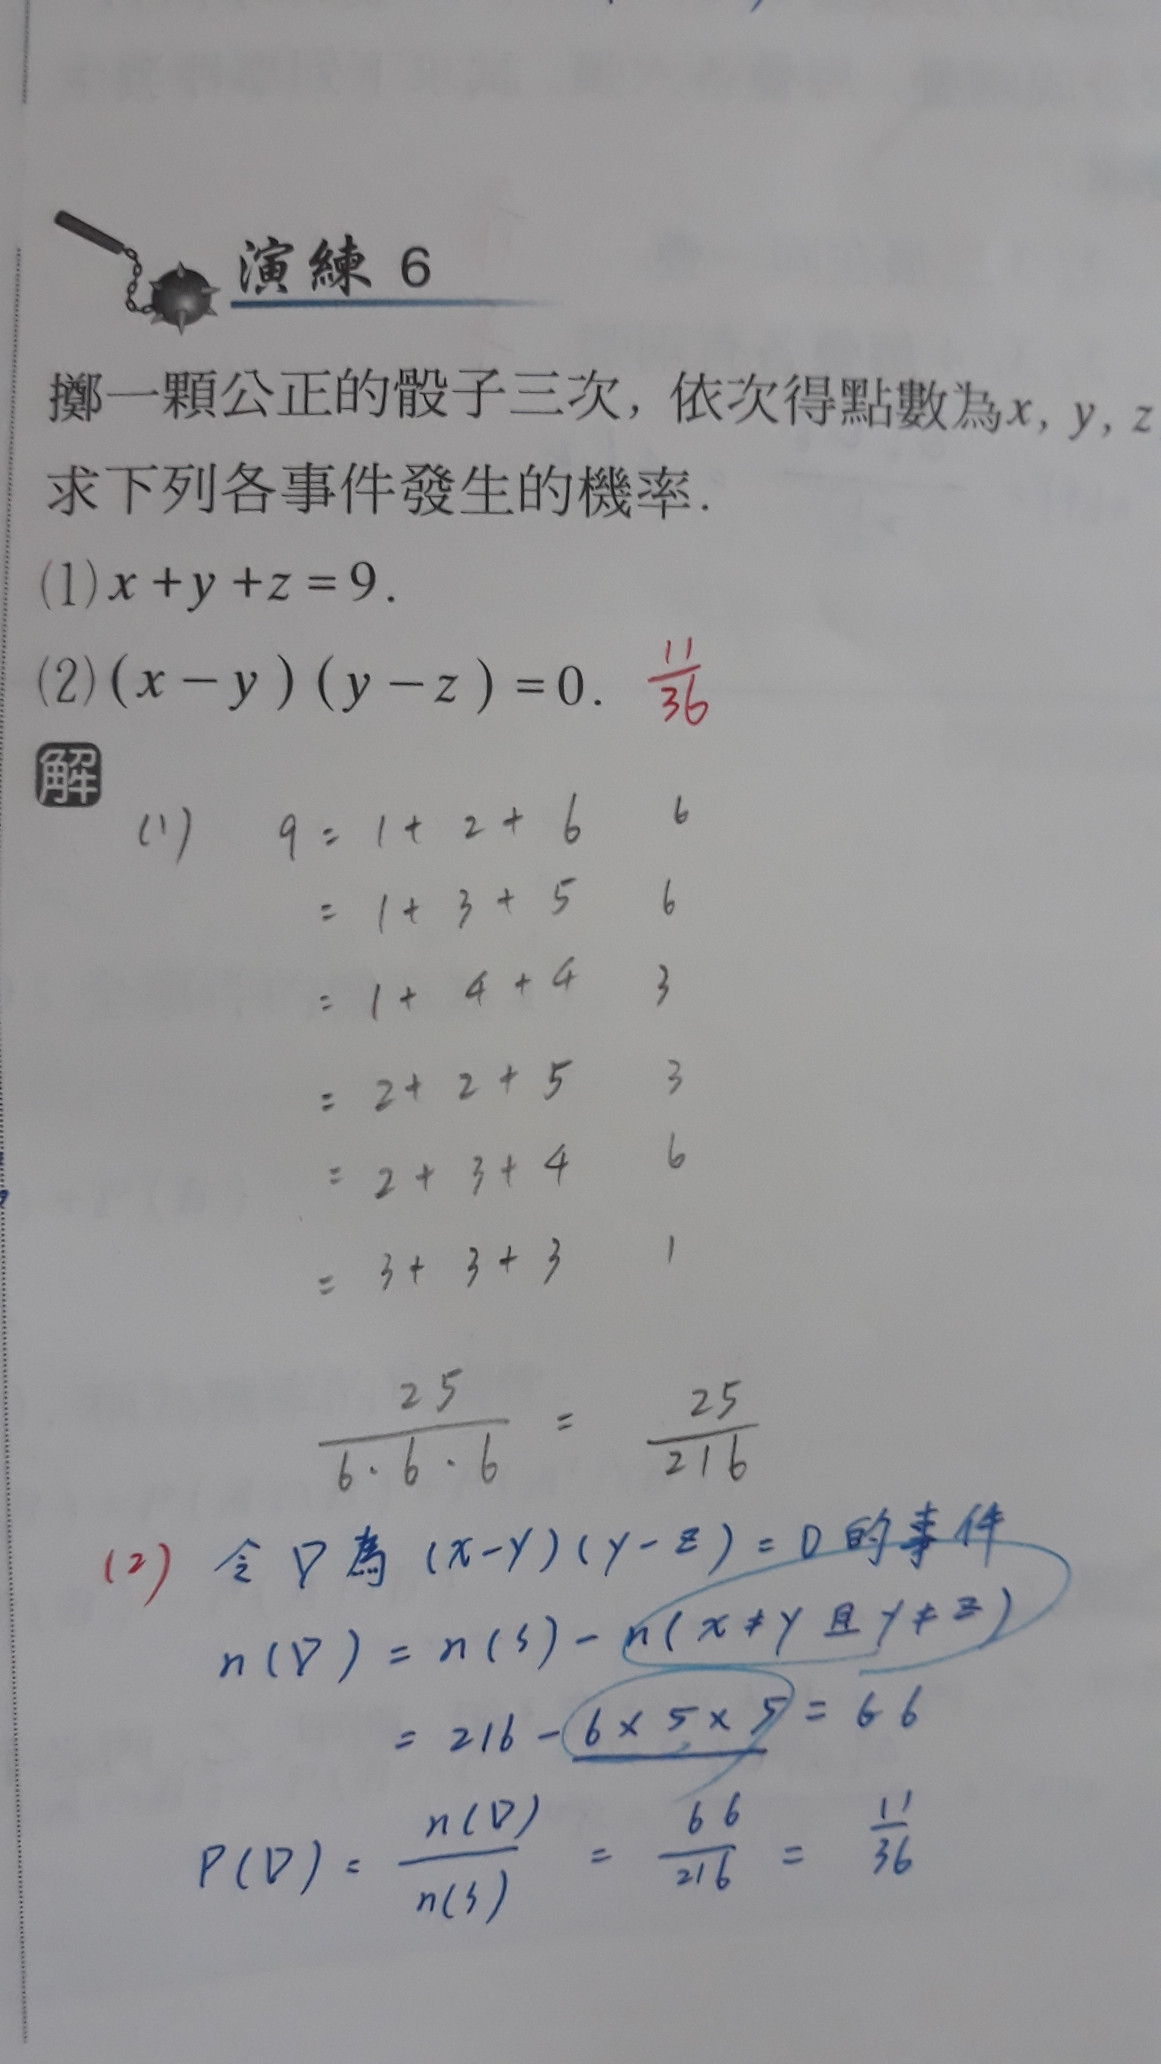 演練 6
擲一顆公正的骰子三次, 依次得點數為x, y, z
求下列各事件發生的機率.
(1) x + y + z = 9.
(2) (x − y)(y − z) = 0. 11/36
解
(1) 9 = 1 + 2 + 6 6
= 1 + 3 + 5 6
= 1 + 4 + 4 3
= 2 + 2 + 5 3
= 2 + 3 + 4 6
= 3 + 3 + 3 1
25/6·6·6 = 25/216
(2) 令 D 為 (x-y)(y-z) = 0 的事件
n(D) = n(S) - n(x≠y 且 y≠z)
= 216 - 6×5×5 = 66
P(D) = n(D)/n(S) = 66/216 = 11/36